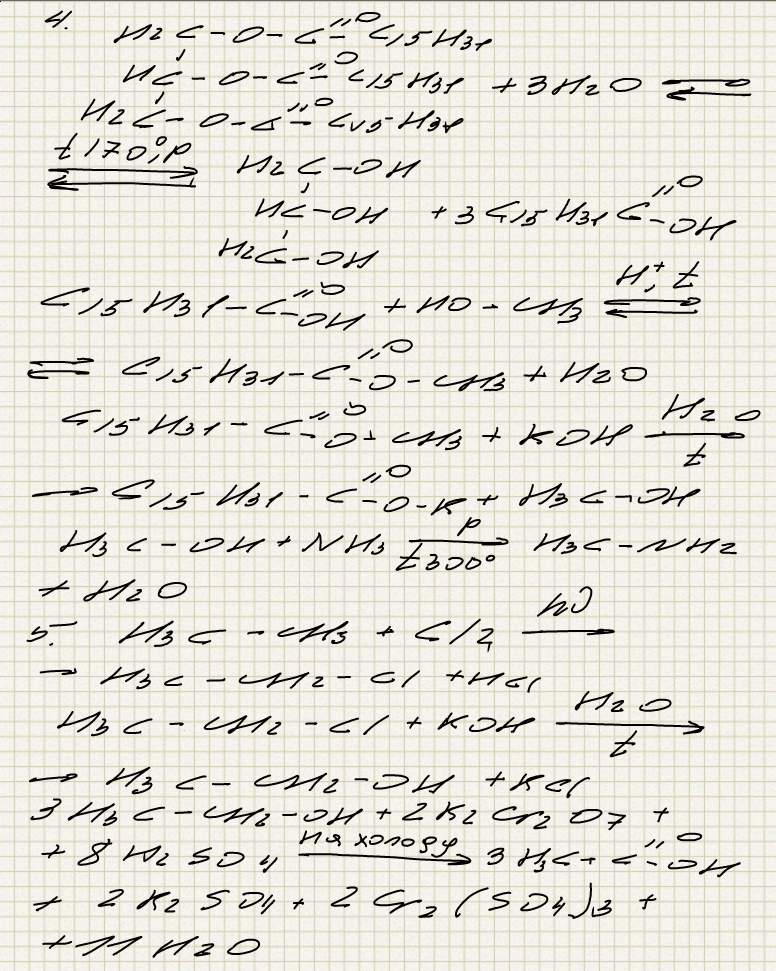 4.
H2C-O-C=O C15H31
HC-O-C=O C15H31 +3H2O ⇌
H2C-O-C=O C15H31
t 170°, p
⇌ H2C-OH
HC-OH +3 C15H31 C=O -OH
H2C-OH
C15H31-C=O -OH +HO-CH3 H+, t ⇌
⇌ C15H31-C=O -O-CH3 + H2O
C15H31-C=O -O-CH3 + KOH H2O t →
→ C15H31-C=O -O-K + H3C-OH
H3C-OH + NH3 p t 300° → H3C-NH2
+ H2O
5. H3C-CH3 + Cl2 hν →
→ H3C-CH2-Cl +HCl
H3C-CH2-Cl + KOH H2O t →
→ H3C-CH2-OH +KCl
3 H3C-CH2-OH + 2K2Cr2O7 +
+ 8 H2SO4 на холоду → 3 H3C-C=O -OH
+ 2 K2SO4 + 2 Cr2(SO4)3 +
+11 H2O